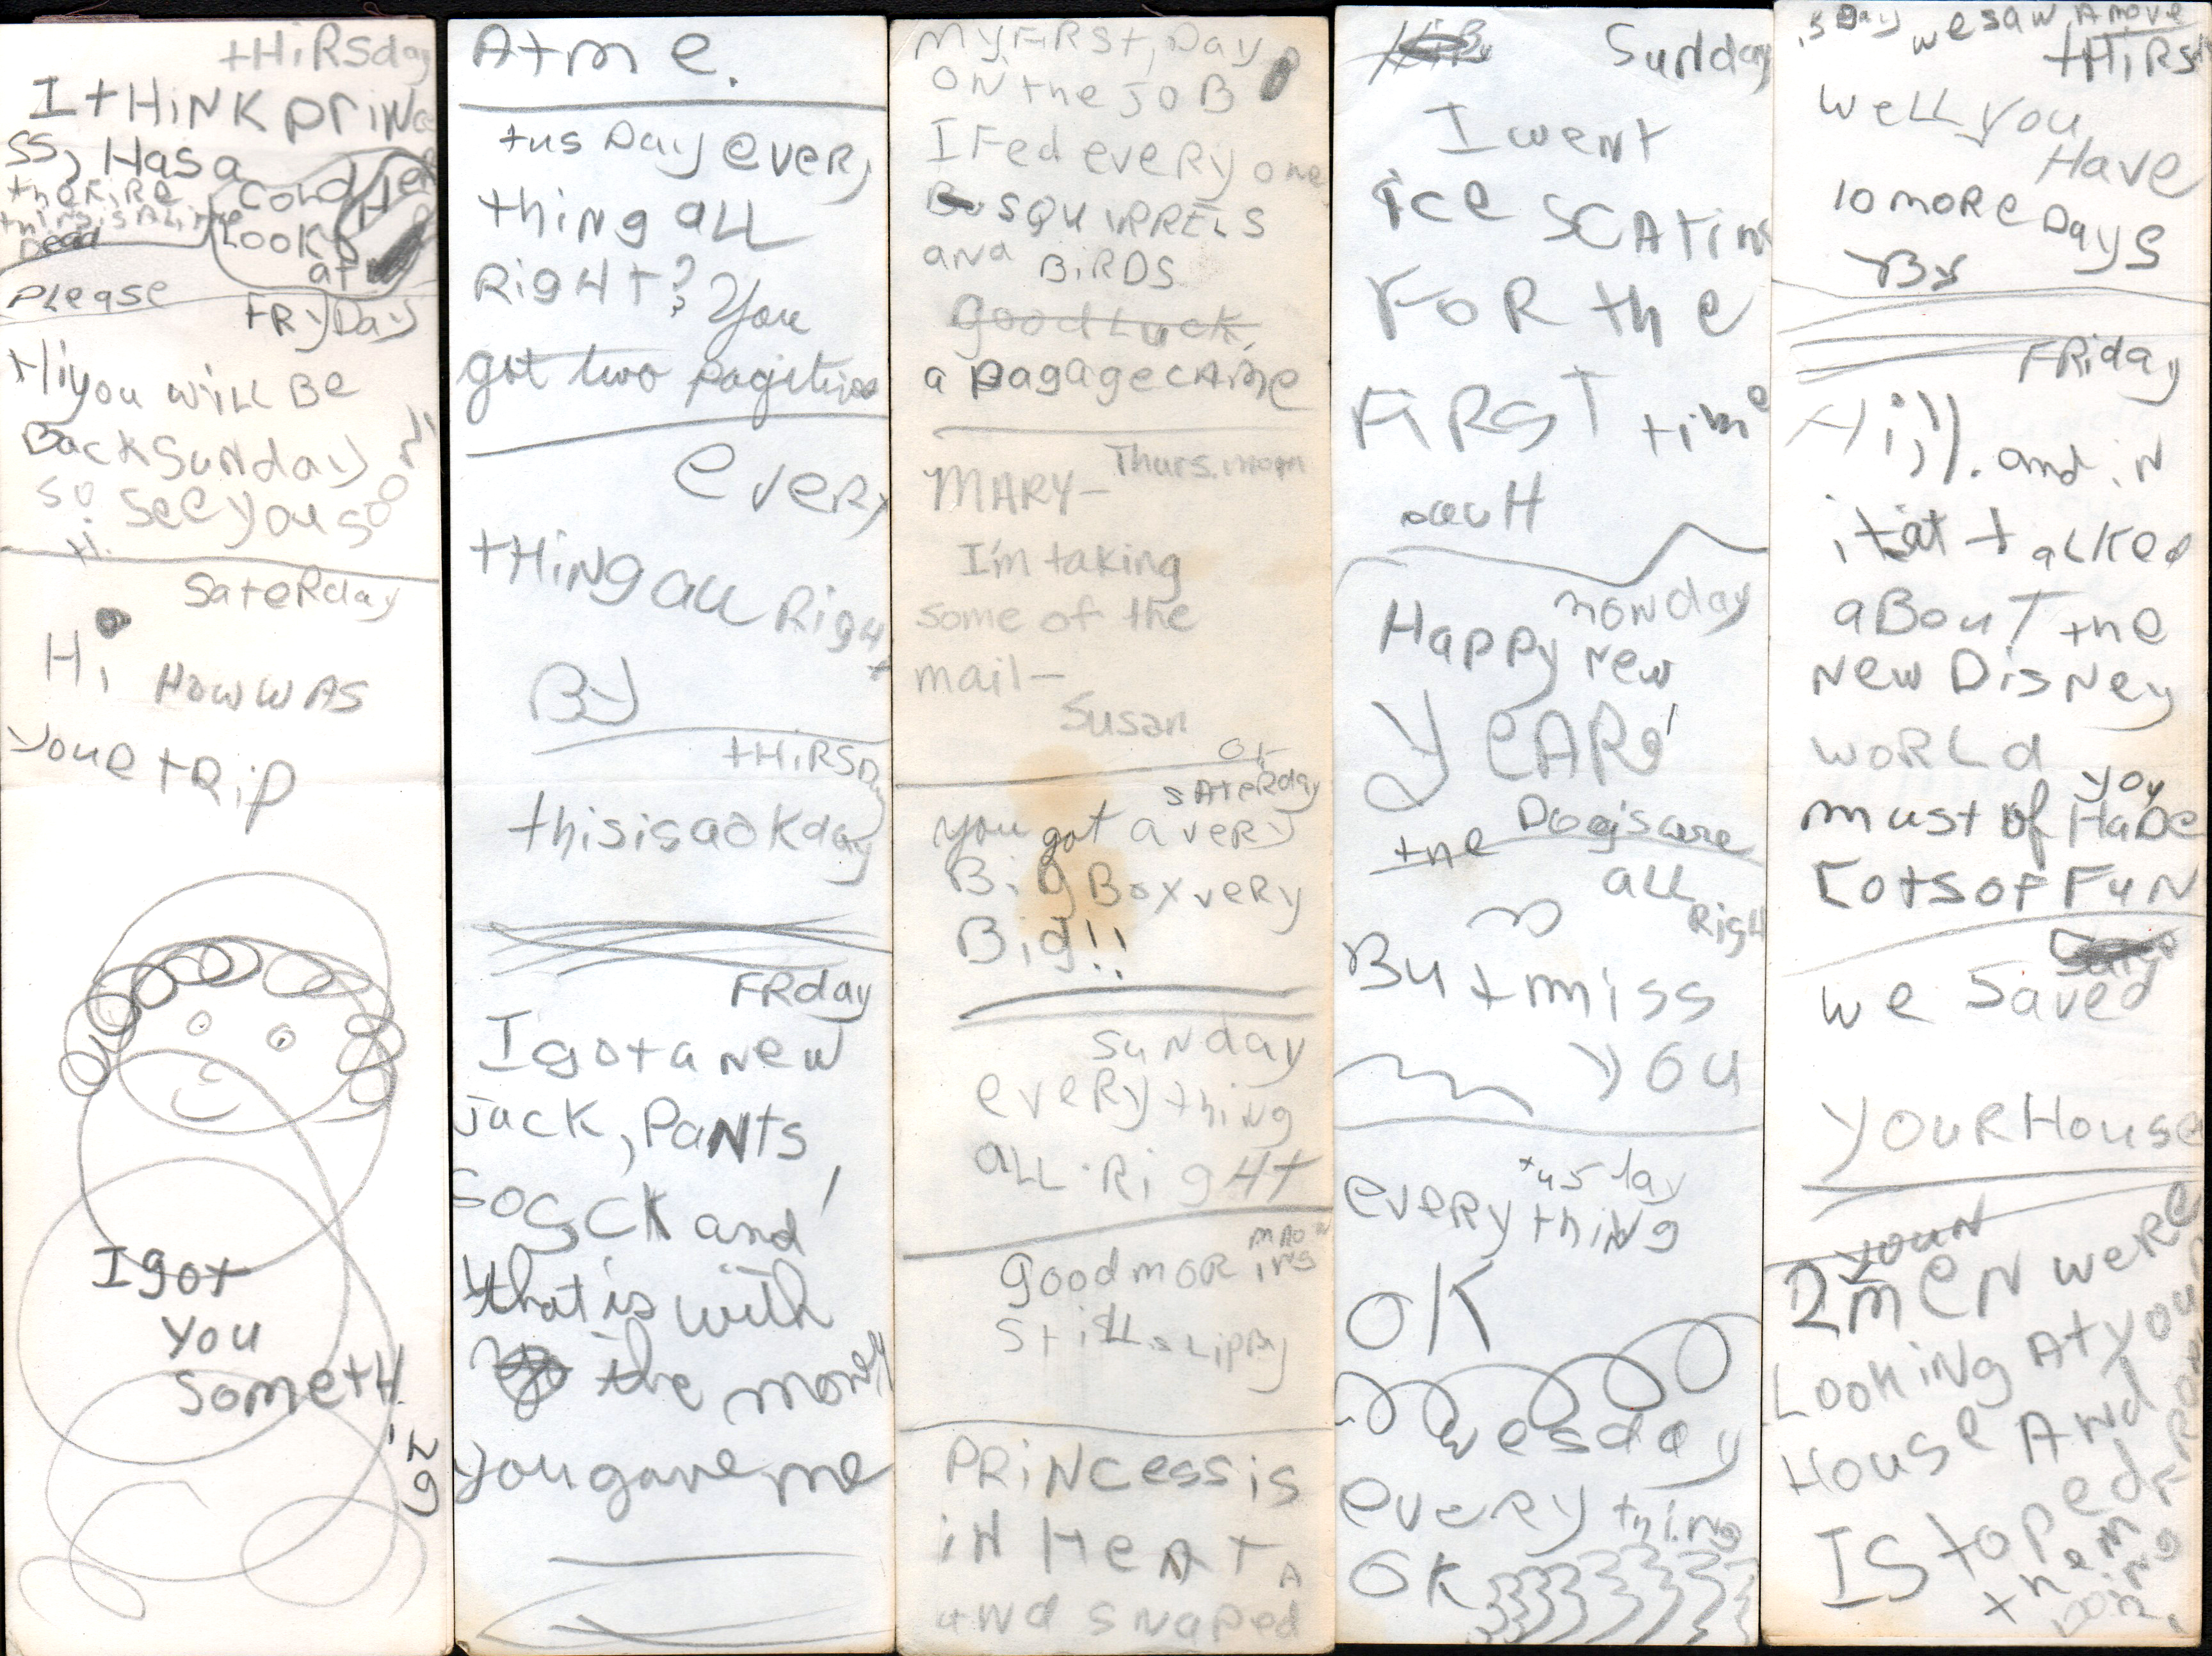 tHiRSday
I tHiNK priNce
SS, Has a
the Fire
thing is A Little
Dead
COLD HER
LOOK
at
PLease
FRyDay
Hi you wiLL Be
Back Sunday
so see you soon
Hi.
SateRday
Hi How WAS
youe tRip
I got
you
SometH
ing
Atm e.
tus Day eveRy
thing aLL
Right? You
got two pagetives
eveRy
tHiNg aLL Right
By
tHiRSDay
this is a ok day
FRday
I got a new
Jack, PaNts,
Sosck and
that is with
the money
you gave me
My FiRSt, Day
ON the JOB
I Fed eveRy one
SQUIRRELS
and BiRDS
good Luck,
a pagage CAme
Thurs. morn
MARY–
I'm taking
some of the
mail–
Susan
OK
SAteRday
you got a veRy
Big Box veRy
Big!!
SuNday
eveRything
aLL RigHt
good moR ing
still sLippy
PRiNCess is
iN HeAT,
and SNaped
Sunday
I went
ice SCAtiNg
FoR the
FiRST time
oucH
monday
Happy new
yeAR!
the Dogs are
aLL
Right
But miss
you
tusday
eveRy thiNg
OK
wesday
eveRy thing
OK
we saw A move
tHiRSd
weLL you
Have
10 moRe Days
By
FRiday
Hi!!. and iN
it at taLked
aBouT the
New DisNey
woRLd
you
must of HaDe
Lots of FuN
we Saved
youR House
youN
2 meN weRe
LookiNg At youR
House ANd
I Stoped
them FRom
Doing